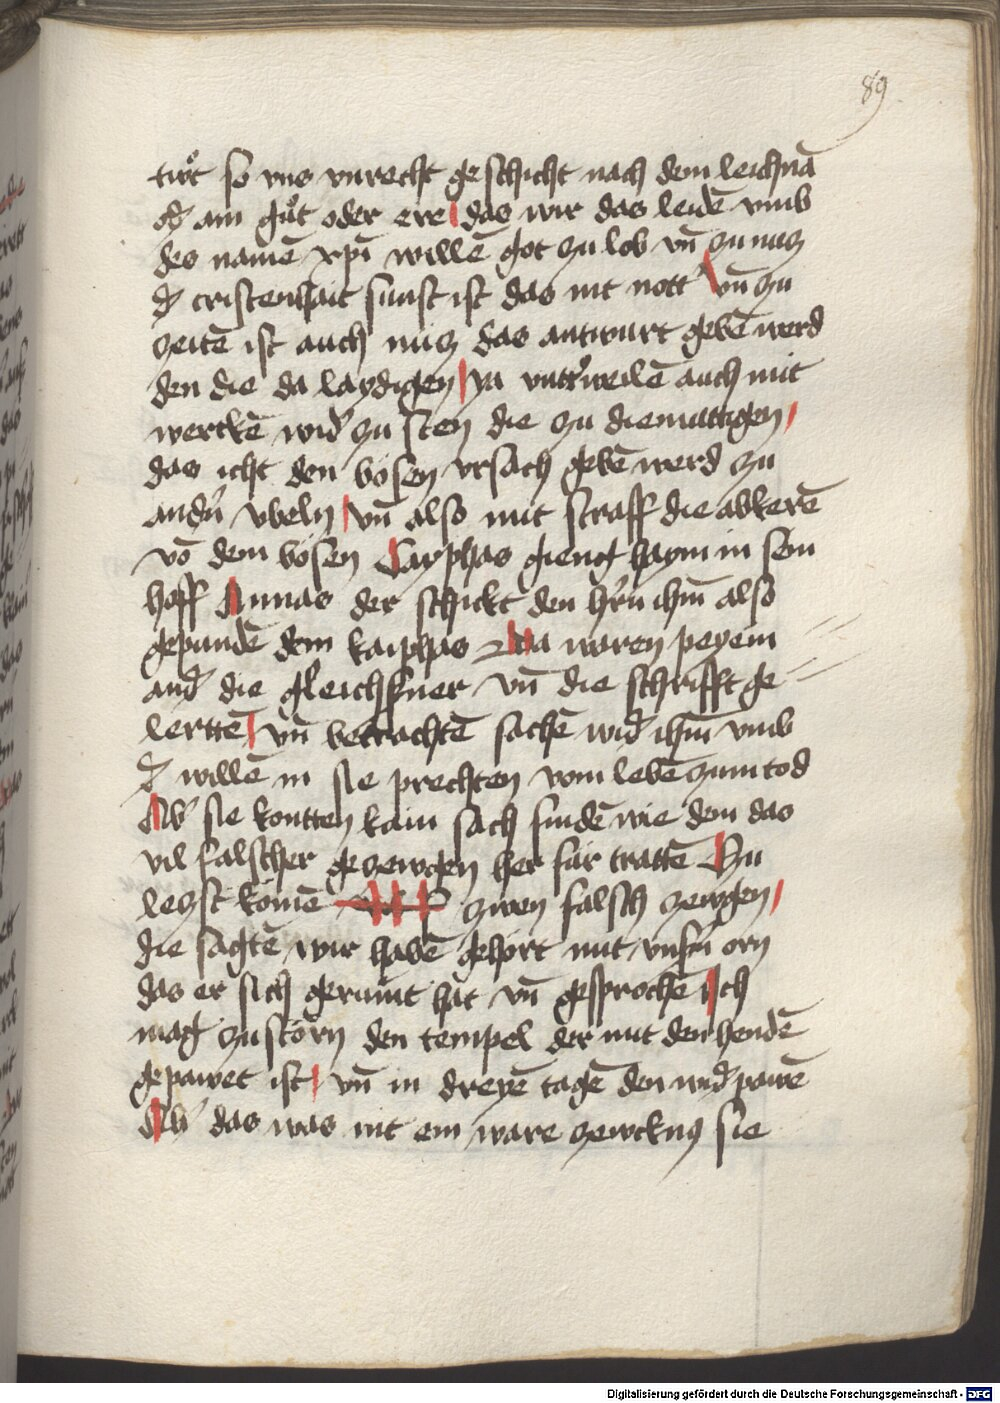 89
so vns vnrecht geschicht nach dem leichnā
od̄ am gůt oder ere das wir das leidē vmb
des namē xp̄i willē got zu lob vn̄ zu nucz
d̄ cristenhait sunst ist das nit nott vn̄ zu
zeitē ist auch nucz das antwurt gebē werd
den die da laydigen ya vntt̓weilē auch mit
werckē wid̓ zu sten die zu diemuttigen
das icht den bösen vrsach gebē werd zu
andn̄ vbeln vn̄ also mit straff die abkerē
vō dem bösen Cayphas gieng haym in sein
hoff Annas der schickt den hr̄n ihm̄ also
gepundē dem kaiphas Da waren peyein
and̓ die gleichsner vn̄ die schrifft ge
lerttē vn̄ betrachtē sachē wid̓ ihm̄ vmb
d̄ willē in sie prechten vom lebē zum tod
Ab̓ sie kontten kain sach findē wie dem das
vil falscher gezewgen her für trattē Zu
leczst kömē zwen falsch zewgen
die sagtē wir habē gehört mit vnsn̄ orn
das er sich gerümt hat vn̄ gesprochē Ich
mag zustörn den tempel der mit den hendē
gepawet ist vn̄ in dreyē tagē den wid̓ pawē
Ab̓ das was nit ein ware zewcknus sie
Digitalisierung gefördert durch die Deutsche Forschungsgemeinschaft - DFG